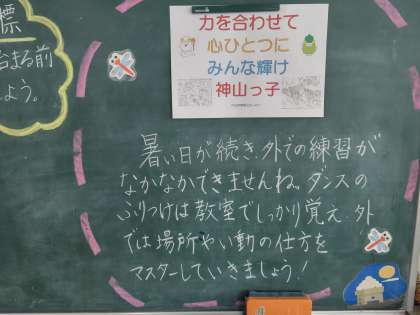 標
まる前
よう。
力を合わせて
心ひとつに
みんな輝け
神山っ子
暑い日が続き、外での練習が
なかなかできませんね。ダンスの
ふりつけは教室でしっかり覚え、外
では場所やい動の仕方を
マスターしていきましょう!